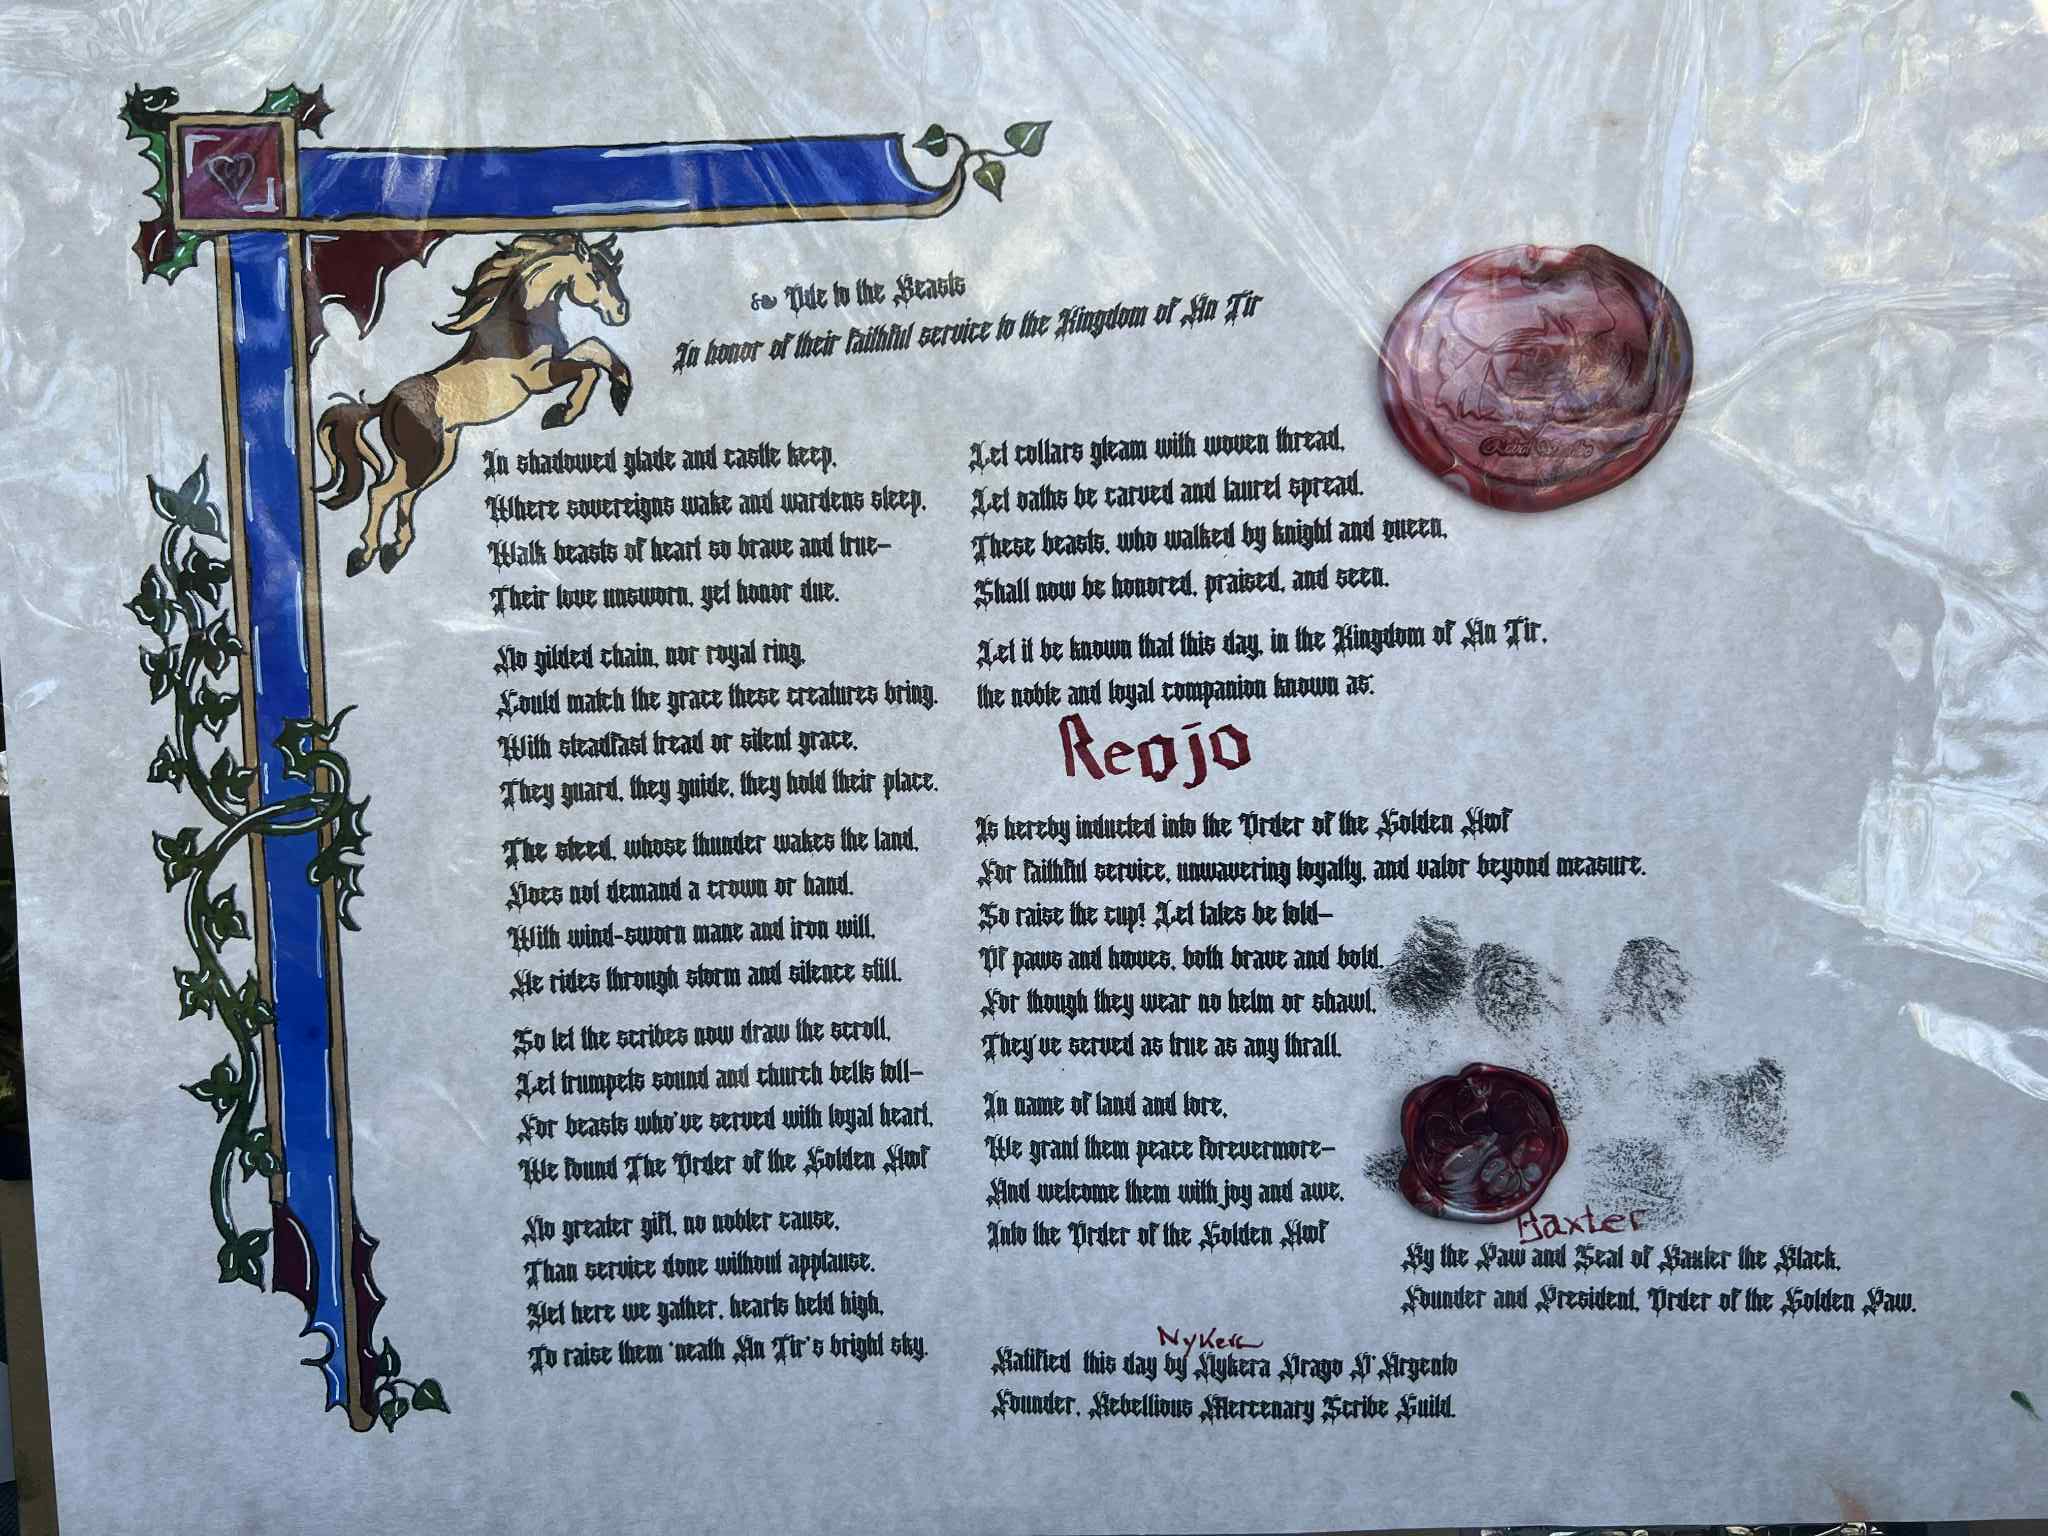 Ode to the Beasts
In honor of their faithful service to the Kingdom of An Tir
In shadowed glade and castle keep,
Where sovereigns wake and wardens sleep,
Walk beasts of heart so brave and true—
Their love unsworn, yet honor due.
No gilded chain, nor royal ring,
Could match the grace these creatures bring.
With steadfast tread or silent grace,
They guard, they guide, they hold their place.
The steed, whose thunder wakes the land,
Does not demand a crown or hand.
With wind-sworn mane and iron will,
He rides through storm and silence still.
So let the scribes now draw the scroll,
Let trumpets sound and church bells toll—
For beasts who've served with loyal heart,
We found The Order of the Golden Hoof
No greater gift, no nobler cause,
Than service done without applause.
Yet here we gather, hearts held high,
To raise them 'neath An Tir's bright sky.
Let collars gleam with woven thread,
Let oaths be carved and laurel spread.
These beasts, who walked by knight and queen,
Shall now be honored, praised, and seen.
Let it be known that this day, in the Kingdom of An Tir,
the noble and loyal companion known as:
Reojo
Is hereby inducted into the Order of the Golden Hoof
For faithful service, unwavering loyalty, and valor beyond measure.
So raise the cup! Let tales be told—
Of paws and hooves, both brave and bold.
For though they wear no helm or shawl,
They've served as true as any thrall.
In name of land and lore,
We grant them peace forevermore—
And welcome them with joy and awe,
Into the Order of the Golden Hoof
Baxter
By the Paw and Seal of Baxter the Black,
Founder and President, Order of the Golden Paw.
Nykera
Ratified this day by Nykera Drago D'Argento
Founder, Rebellious Mercenary Scribe Guild.